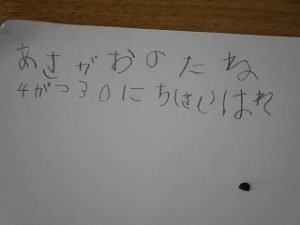 あさがおのたね
4がつ30にちはれ